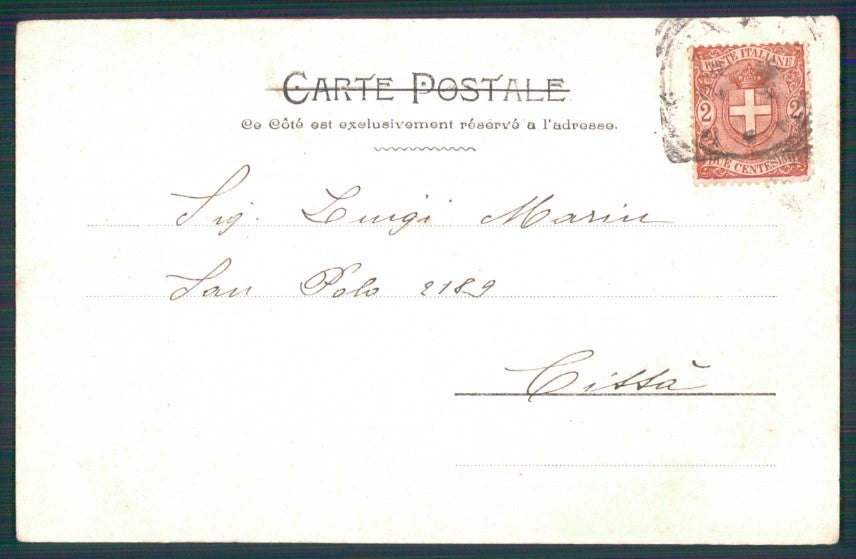 CARTE POSTALE
Ce Côté est exclusivement réservé a l'adresse.
POSTE ITALIANE
2 2
DUE CENTESIMI
Sig. Luigi Marin
San Polo 2189
Città